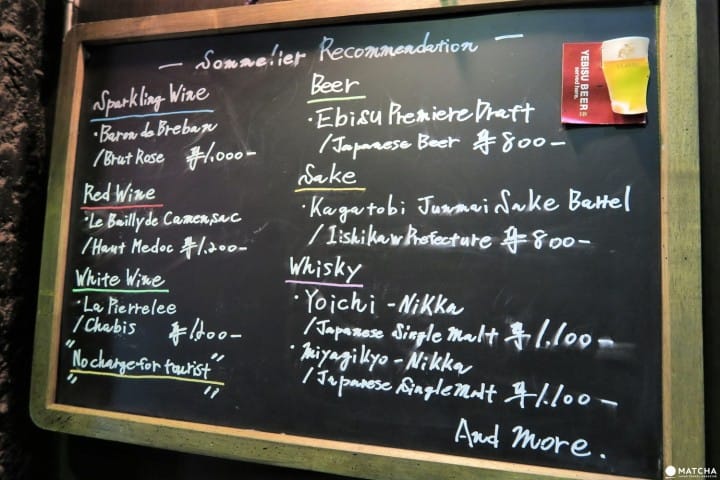 — Sommelier Recommendation —
Sparkling Wine
・Baron de Breban
/Brut Rose ¥1.000-
Red Wine
・Le Bailly de Camen,sac
/Haut Medoc ¥1.200-
White Wine
・La Pierrelee
/Chabis ¥1,200-
"No charge for tourist"
Beer
・Ebisu Premiere Draft
/Japanese Beer ¥800-
Sake
・Kagatobi Junmai Sake Battel
/Iishikaw Prefecture ¥800-
Whisky
・Yoichi - Nikka
/Japanese Single Malt ¥1.100-
・Miyagikyo - Nikka
/Japanese Single Malt ¥1.100-
And More.
YEBISU BEER
served here.
MATCHA